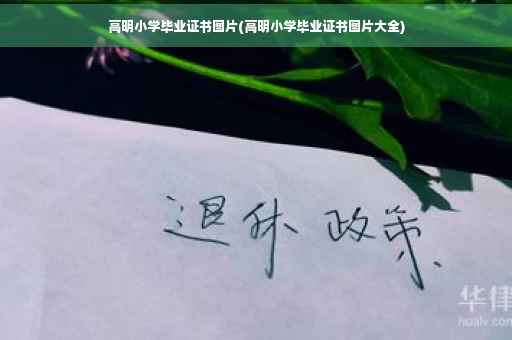 高明小学毕业证书图片(高明小学毕业证书图片大全)
退休 政策
华律
hualv.com